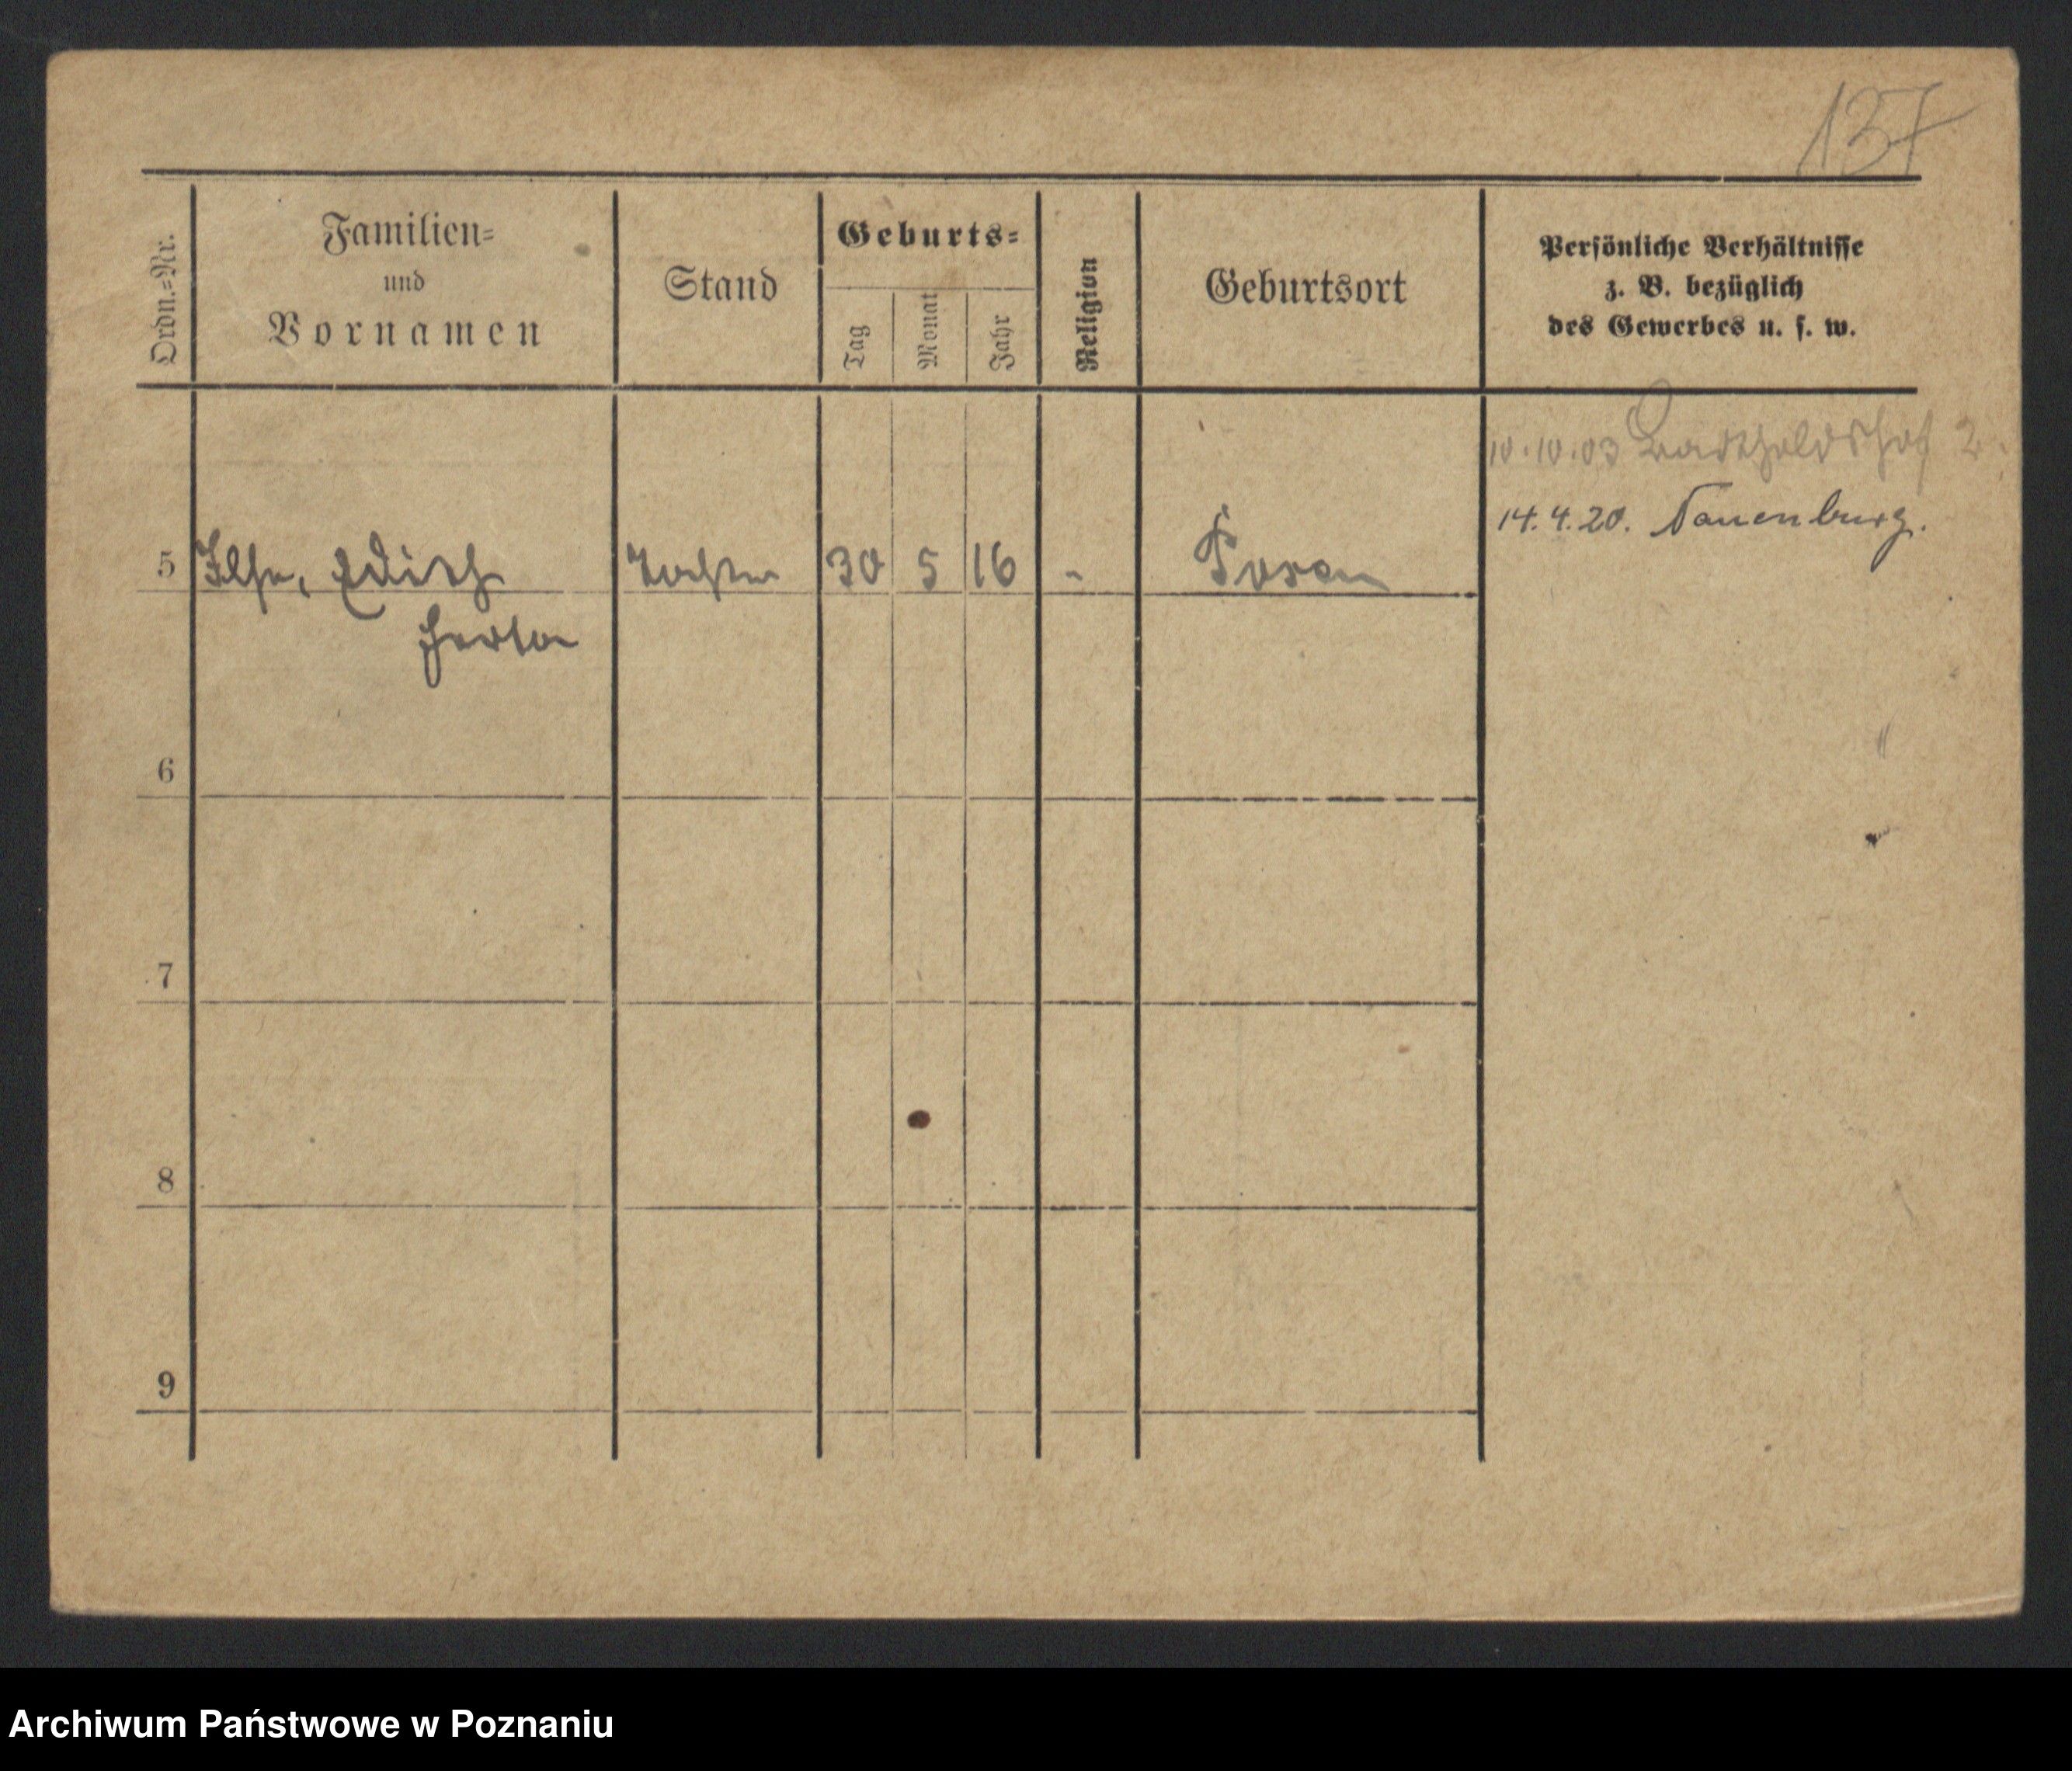 137
Ordn.=Nr.
Familien=
und
Vornamen
Stand
Geburts=
Tag
Monat
Jahr
Religion
Geburtsort
Persönliche Verhältnisse
z. B. bezüglich
des Gewerbes u. s. w.
10.10.03 Bartholdshof 2.
14.4.20. Nauenburg.
5 Ilse, Edith Tochter 30 5 16 - Posen
Herta
6
7
8
9
Archiwum Państwowe w Poznaniu